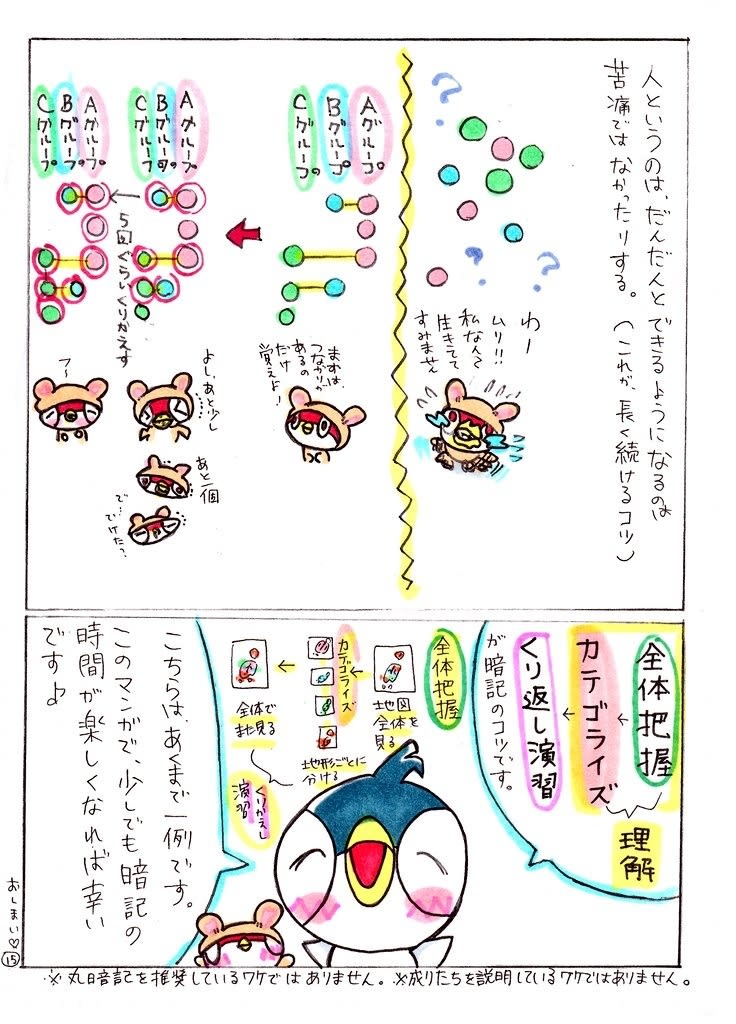 人というのは、だんだんと できるようになるのは
苦痛では なかったりする。(これが、長く続けるコツ)
わー
ムリ!!
私なんて
生きてて
すみません
Aグループ。
Bグループ。
Cグループ。
まずは、
つながりが
あるの
だけ
覚えよー!
Aグループ
Bグループ。
Cグループ
よし、あと少し
あと一個
で…でけた?
5回ぐらいくりかえす
Aグループ。
Bグループ。
Cグループ。
フー
全体把握
↓
カテゴライズ
↓
くり返し演習
が暗記のコツです。
理解
全体把握
地図
全体を
見る
カテゴライズ
地形ごとに
分ける
全体で
また見る
くりかえし
演習
こちらは、あくまで一例です。
このマンガで、少しでも 暗記の
時間が 楽しくなれば 幸い
ですよ
おしまい♡
15
※丸暗記を推奨しているワケではありません。※成りたちを説明しているワケではありません。